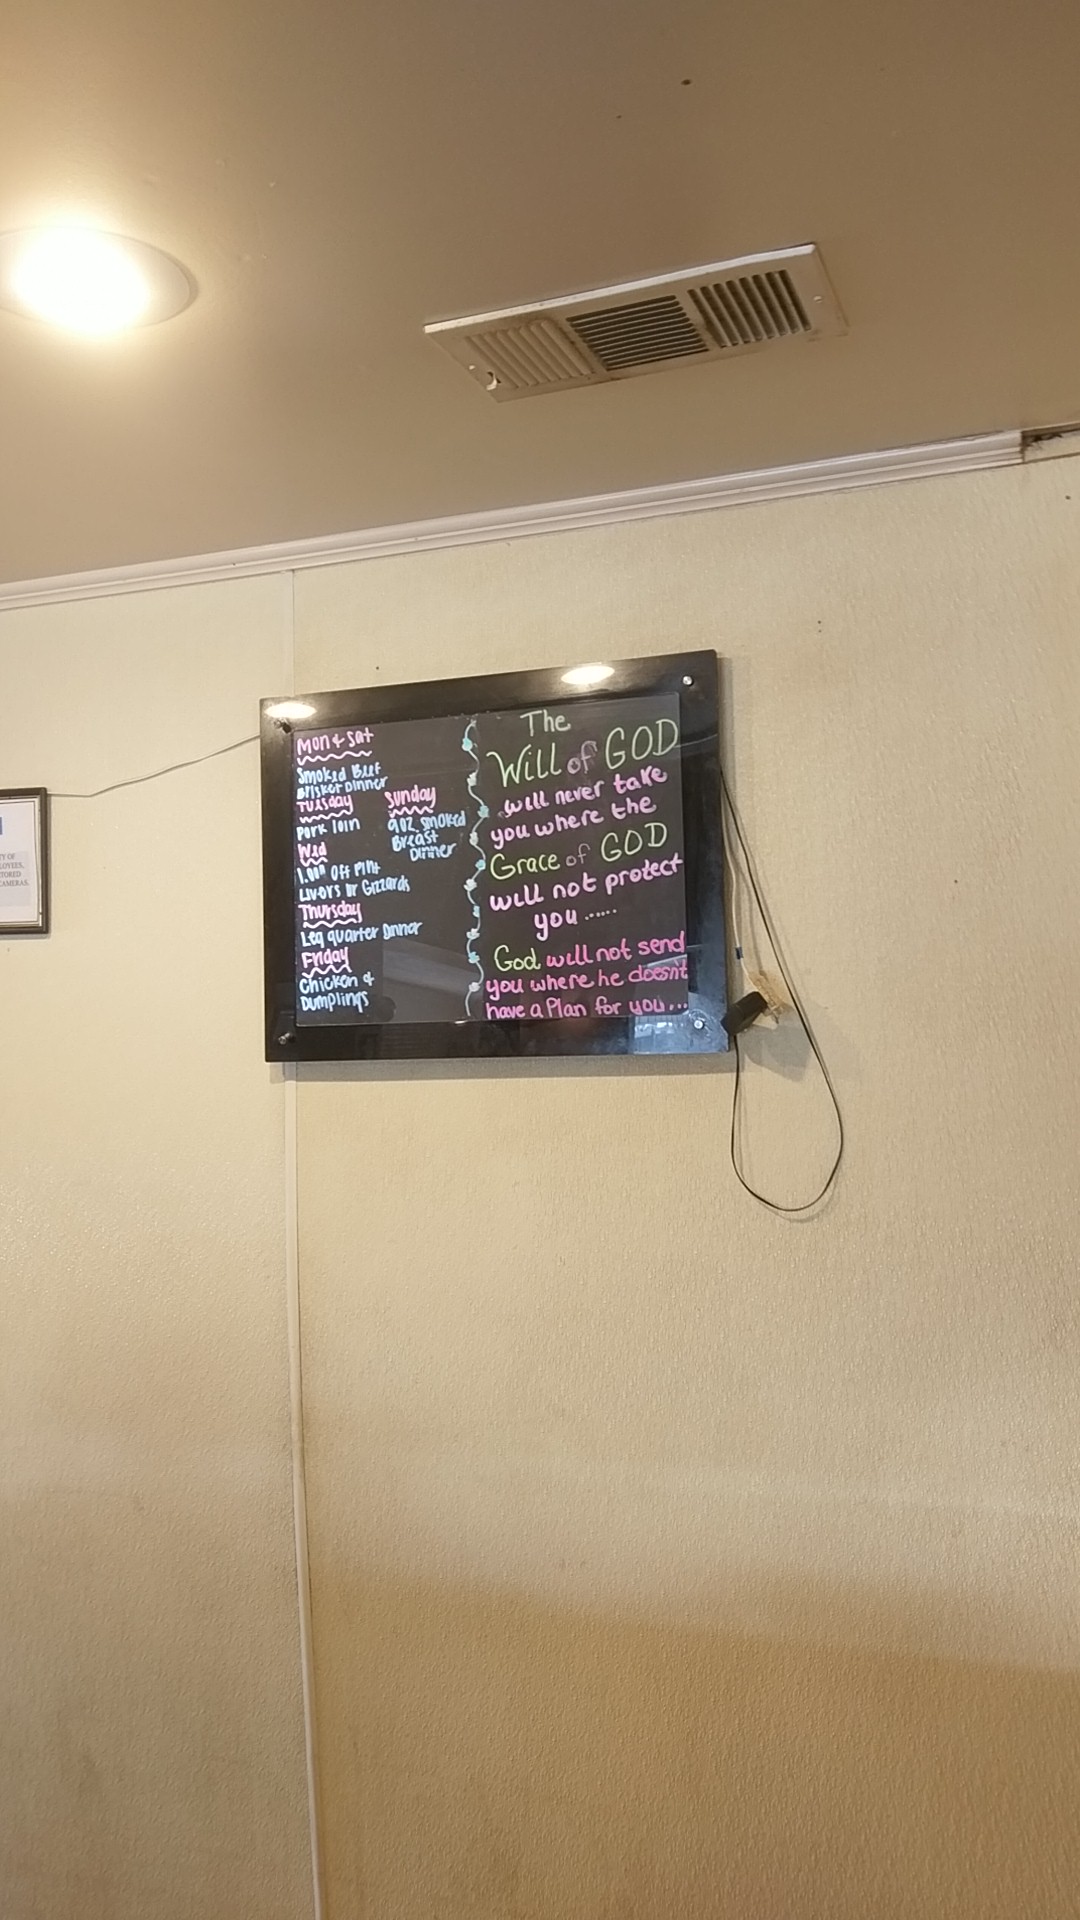 Mon & Sat
Smoked Beef
Brisket Dinner
Tuesday
Pork loin
Wed
1.00 Off Pint
Livers or Gizzards
Thursday
Leg quarter Dinner
Friday
Chicken &
Dumplings
Sunday
9oz. Smoked
Breast
Dinner
The
Will of GOD
will never take
you where the
Grace of GOD
will not protect
you ......
God will not send
you where he doesn't
have a Plan for you...
TY OF
LOYEES,
TORED
CAMERAS.